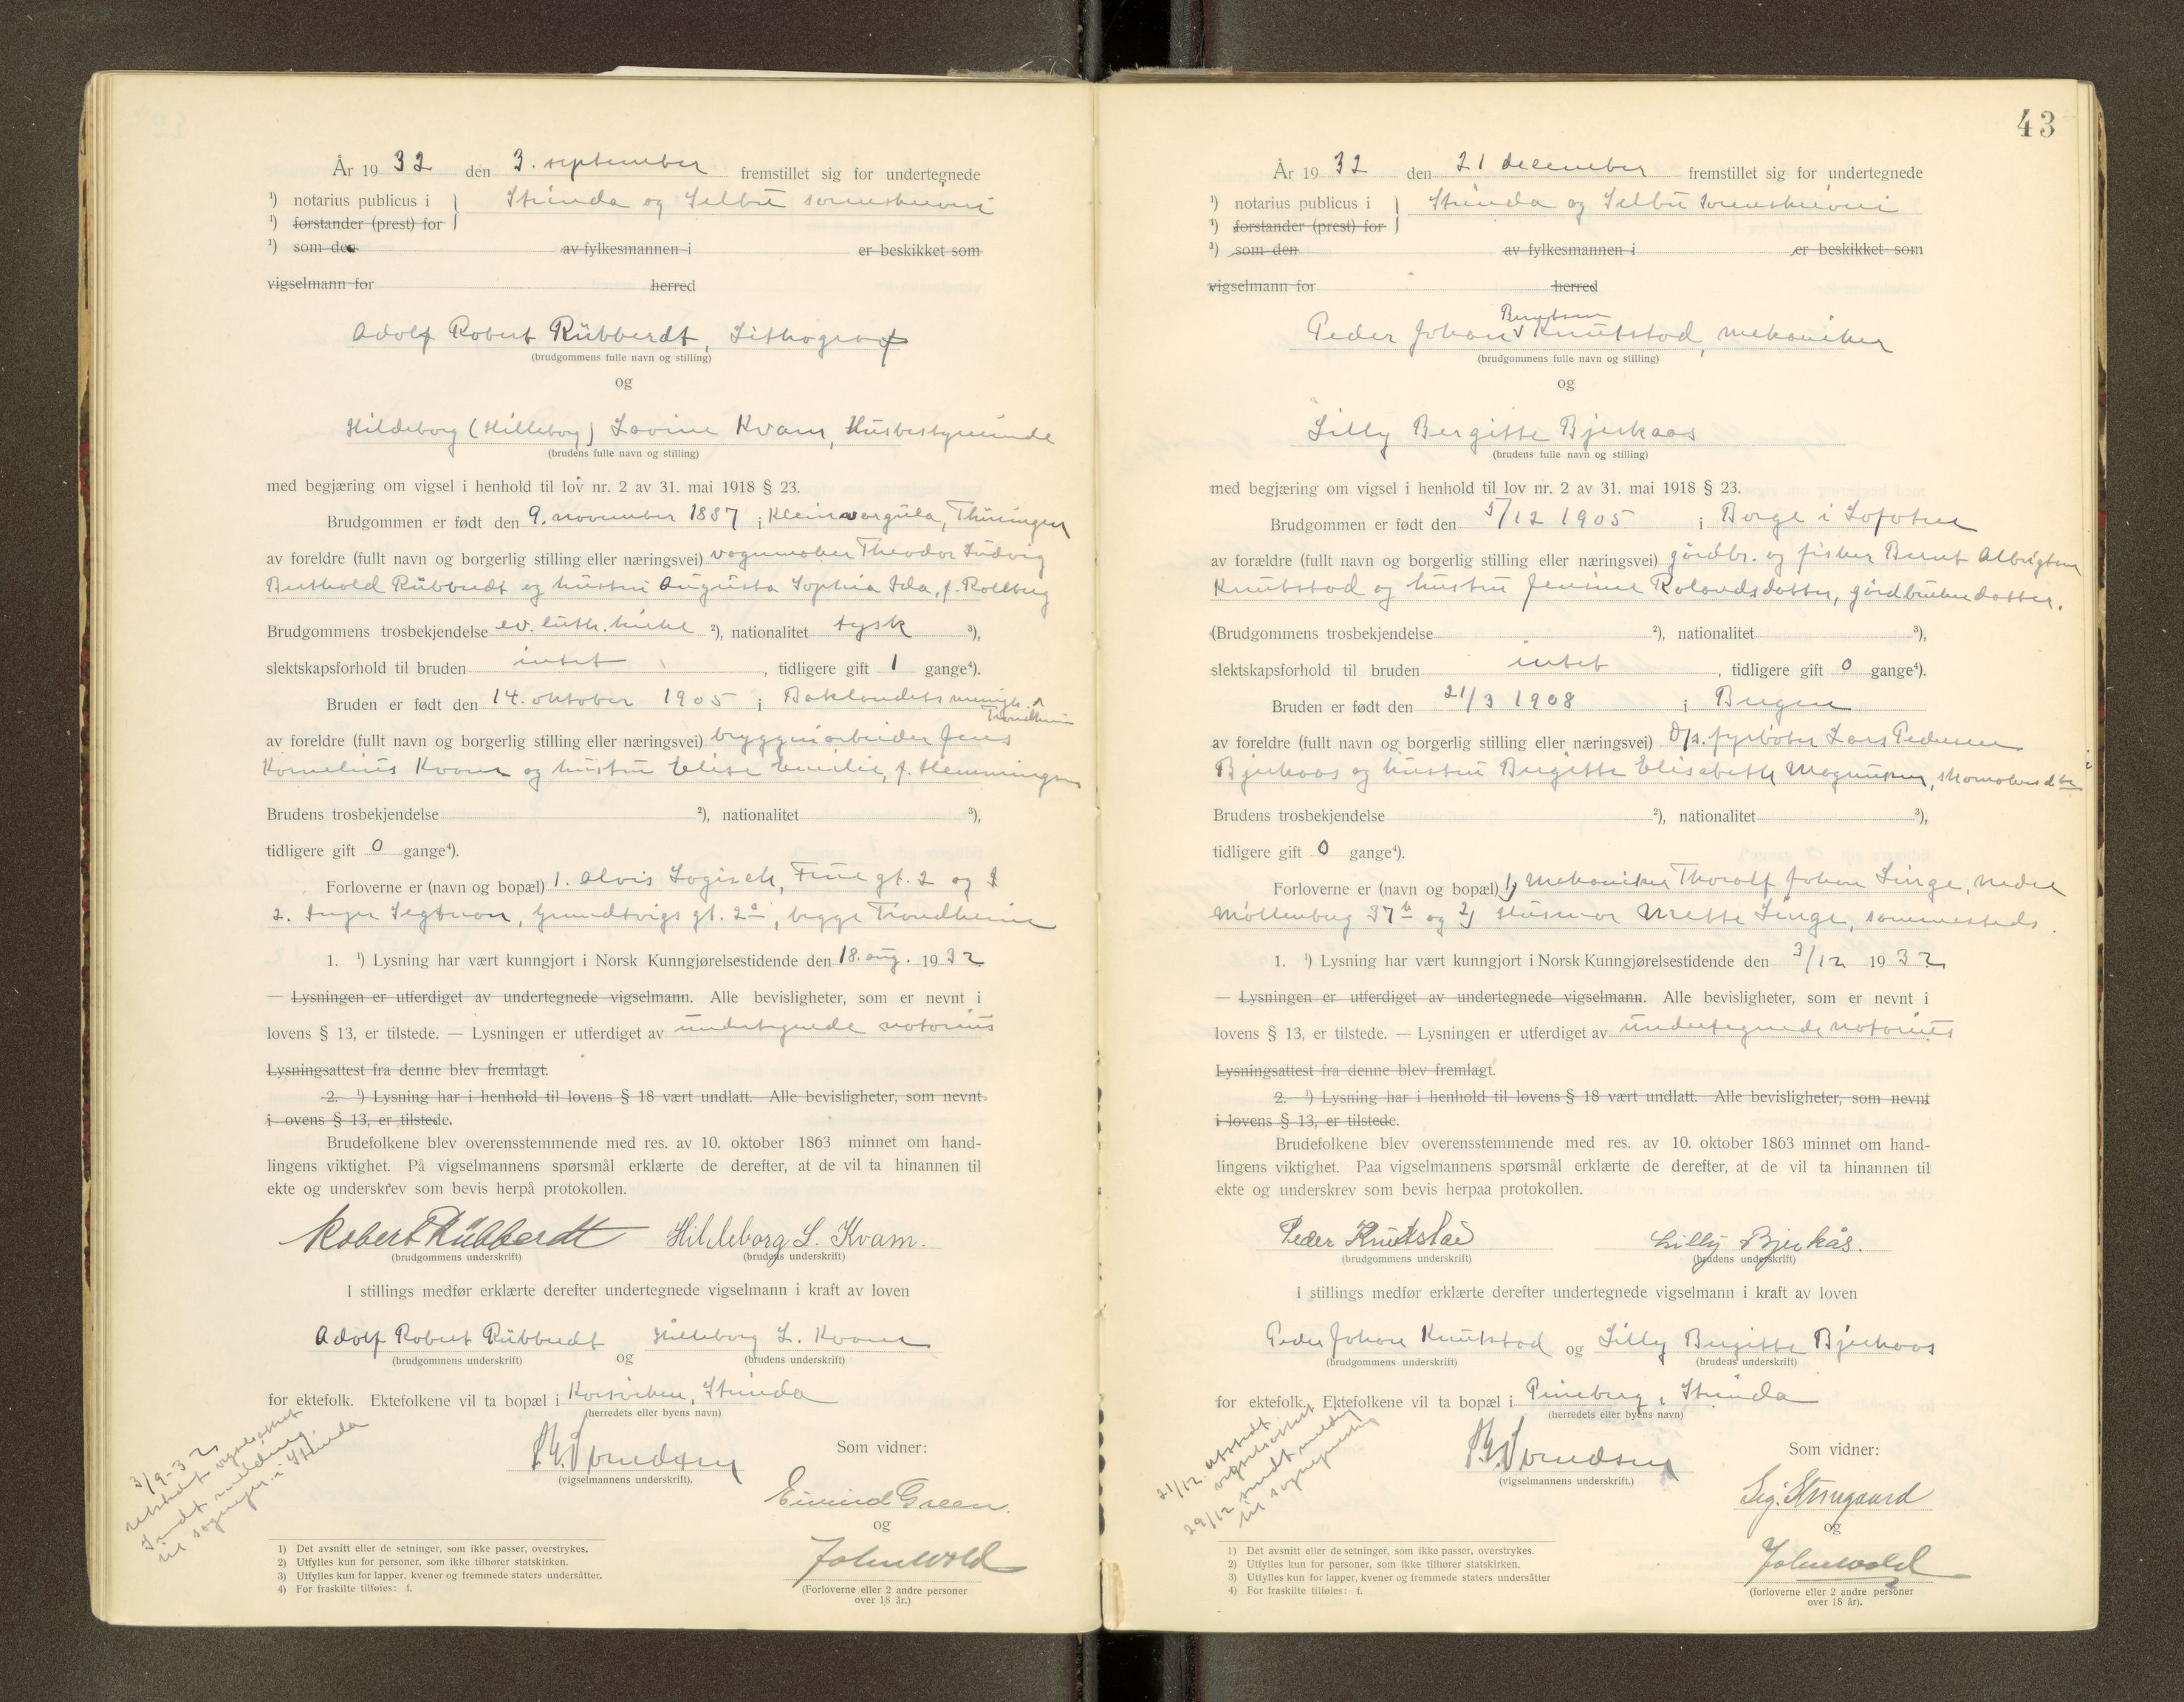 År 19 32 den 3. september fremstillet sig for undertegnede
¹) notarius publicus i Strinda og Selbu sorenskriveri
¹) forstander (prest) for
¹) som den av fylkesmannen i er beskikket som
vigselmann for herred
Adolf Robert Rübberdt, Lithograf
(brudgommens fulle navn og stilling)
og
Hildeborg (Hilleborg) Lovine Kvam, Husbestyrerinde
(brudens fulle navn og stilling)
med begjæring om vigsel i henhold til lov nr. 2 av 31. mai 1918 § 23.
Brudgommen er født den 9. november 1887 i Kleinvargula, Thüringen
av foreldre (fullt navn og borgerlig stilling eller næringsvei) vognmaker Theodor Ludvig
Berthold Rübberdt og hustru Augusta Sophia Ida, f. Rollberg
Brudgommens trosbekjendelse ev. luth. kirke ²), nationalitet tysk ³),
slektskapsforhold til bruden intet, tidligere gift 1 gange⁴).
Bruden er født den 14. oktober 1905 i Baklandets menigh.
Trondheim
av foreldre (fullt navn og borgerlig stilling eller næringsvei) bryggeriarbeider Jens
Kornelius Kvam og hustru Elise Emilie, f. Hemmingsen
Brudens trosbekjendelse ²), nationalitet ³),
tidligere gift 0 gange⁴).
Forloverne er (navn og bopæl) 1. Alois Logisch, gt. 2 og
2. Inger Segtnan, Grundtvigs gt. 2ª, begge Trondheim
1. ¹) Lysning har vært kunngjort i Norsk Kunngjørelsestidende den 18. aug. 19 32
— Lysningen er utferdiget av undertegnede vigselmann. Alle bevisligheter, som er nevnt i
lovens § 13, er tilstede. — Lysningen er utferdiget av undertegnede notarius
Lysningsattest fra denne blev fremlagt.
2. ¹) Lysning har i henhold til lovens § 18 vært undlatt. Alle bevisligheter, som nevnt
i ovens § 13, er tilstede.
Brudefolkene blev overensstemmende med res. av 10. oktober 1863 minnet om hand-
lingens viktighet. På vigselmannens spørsmål erklærte de derefter, at de vil ta hinannen til
ekte og underskrev som bevis herpå protokollen.
Robert Rübberdt Hildeborg L. Kvam.
(brudgommens underskrift) (brudens underskrift)
I stillings medfør erklærte derefter undertegnede vigselmann i kraft av loven
Adolf Robert Rübberdt og Hilleborg L. Kvam
(brudgommens underskrift) (brudens underskrift)
for ektefolk. Ektefolkene vil ta bopæl i Korsviken, Strinda
(herredets eller byens navn)
3/9-32
utstedt vigselsattest
Sendt melding
til sogneprest i Strinda
(vigselmannens underskrift).
Som vidner:
Eivind Green.
og
John Wold
(Forloverne eller 2 andre personer
over 18 år.)
1) Det avsnitt eller de setninger, som ikke passer, overstrykes.
2) Utfylles kun for personer, som ikke tilhører statskirken.
3) Utfylles kun for lapper, kvener og fremmede staters undersåtter.
4) For fraskilte tilføies: f.
43
År 19 32 den 21 december fremstillet sig for undertegnede
¹) notarius publicus i Strinda og Selbu sorenskriveri
¹) forstander (prest) for
¹) som den av fylkesmannen i er beskikket som
vigselmann for herred
Berntsen
Peder Johan Knutstad, mekaniker
(brudgommens fulle navn og stilling)
og
Lilly Bergitte Bjerkaas
(brudens fulle navn og stilling)
med begjæring om vigsel i henhold til lov nr. 2 av 31. mai 1918 § 23.
Brudgommen er født den 5/12 1905 i Borge i Lofoten
av forældre (fullt navn og borgerlig stilling eller næringsvei) gårdbr. og fisker Bernt Albrigtsen
Knutstad og hustru Jensine Rolandsdatter, gårdbrukerdatter.
(Brudgommens trosbekjendelse ²), nationalitet ³),
slektskapsforhold til bruden intet, tidligere gift 0 gange⁴).
Bruden er født den 21/3 1908 i Bergen
av foreldre (fullt navn og borgerlig stilling eller næringsvei) D/s. fyrbøter Lars Pedersen
Bjerkaas og hustru Bergitte Elisabeth Magnussen, skomakerdtr
Brudens trosbekjendelse ²), nationalitet ³),
tidligere gift 0 gange⁴).
Forloverne er (navn og bopæl) 1) Mekaniker Thoralf Johan Singe, nedre
Møllenberg 37ᵇ og 2) Husmor Mette Singe, sammesteds.
1. ¹) Lysning har vært kunngjort i Norsk Kunngjørelsestidende den 3/12 19 32
— Lysningen er utferdiget av undertegnede vigselmann. Alle bevisligheter, som er nevnt i
lovens § 13, er tilstede. — Lysningen er utferdiget av undertegnede notarius
Lysningsattest fra denne blev fremlagt.
2. ¹) Lysning har i henhold til lovens § 18 vært undlatt. Alle bevisligheter, som nevnt
i lovens § 13, er tilstede.
Brudefolkene blev overensstemmende med res. av 10. oktober 1863 minnet om hand-
lingens viktighet. Paa vigselmannens spørsmål erklærte de derefter, at de vil ta hinannen til
ekte og underskrev som bevis herpaa protokollen.
Peder Knutstad Lilly Bjerkås.
(brudgommens underskrift) (brudens underskrift)
I stillings medfør erklærte derefter undertegnede vigselmann i kraft av loven
Peder Johan Knutstad og Lilly Bergitte Bjerkaas
(brudgommens underskrift) (brudens underskrift)
for ektefolk. Ektefolkene vil ta bopæl i Pineberg, Strinda
(herredets eller byens navn)
21/12. utstedt
vigselsattest
29/12 sendt melding
til sogneprest
(vigselmannens underskrift.)
Som vidner:
Sig. Strugaard
og
John Wold
(forloverne eller 2 andre personer
over 18 år).
1) Det avsnitt eller de setninger, som ikke passer, overstrykes.
2) Utfylles kun for personer, som ikke tilhører statskirken.
3) Utfylles kun for lapper, kvener og fremmede staters undersåtter
4) For fraskilte tilføies: f.